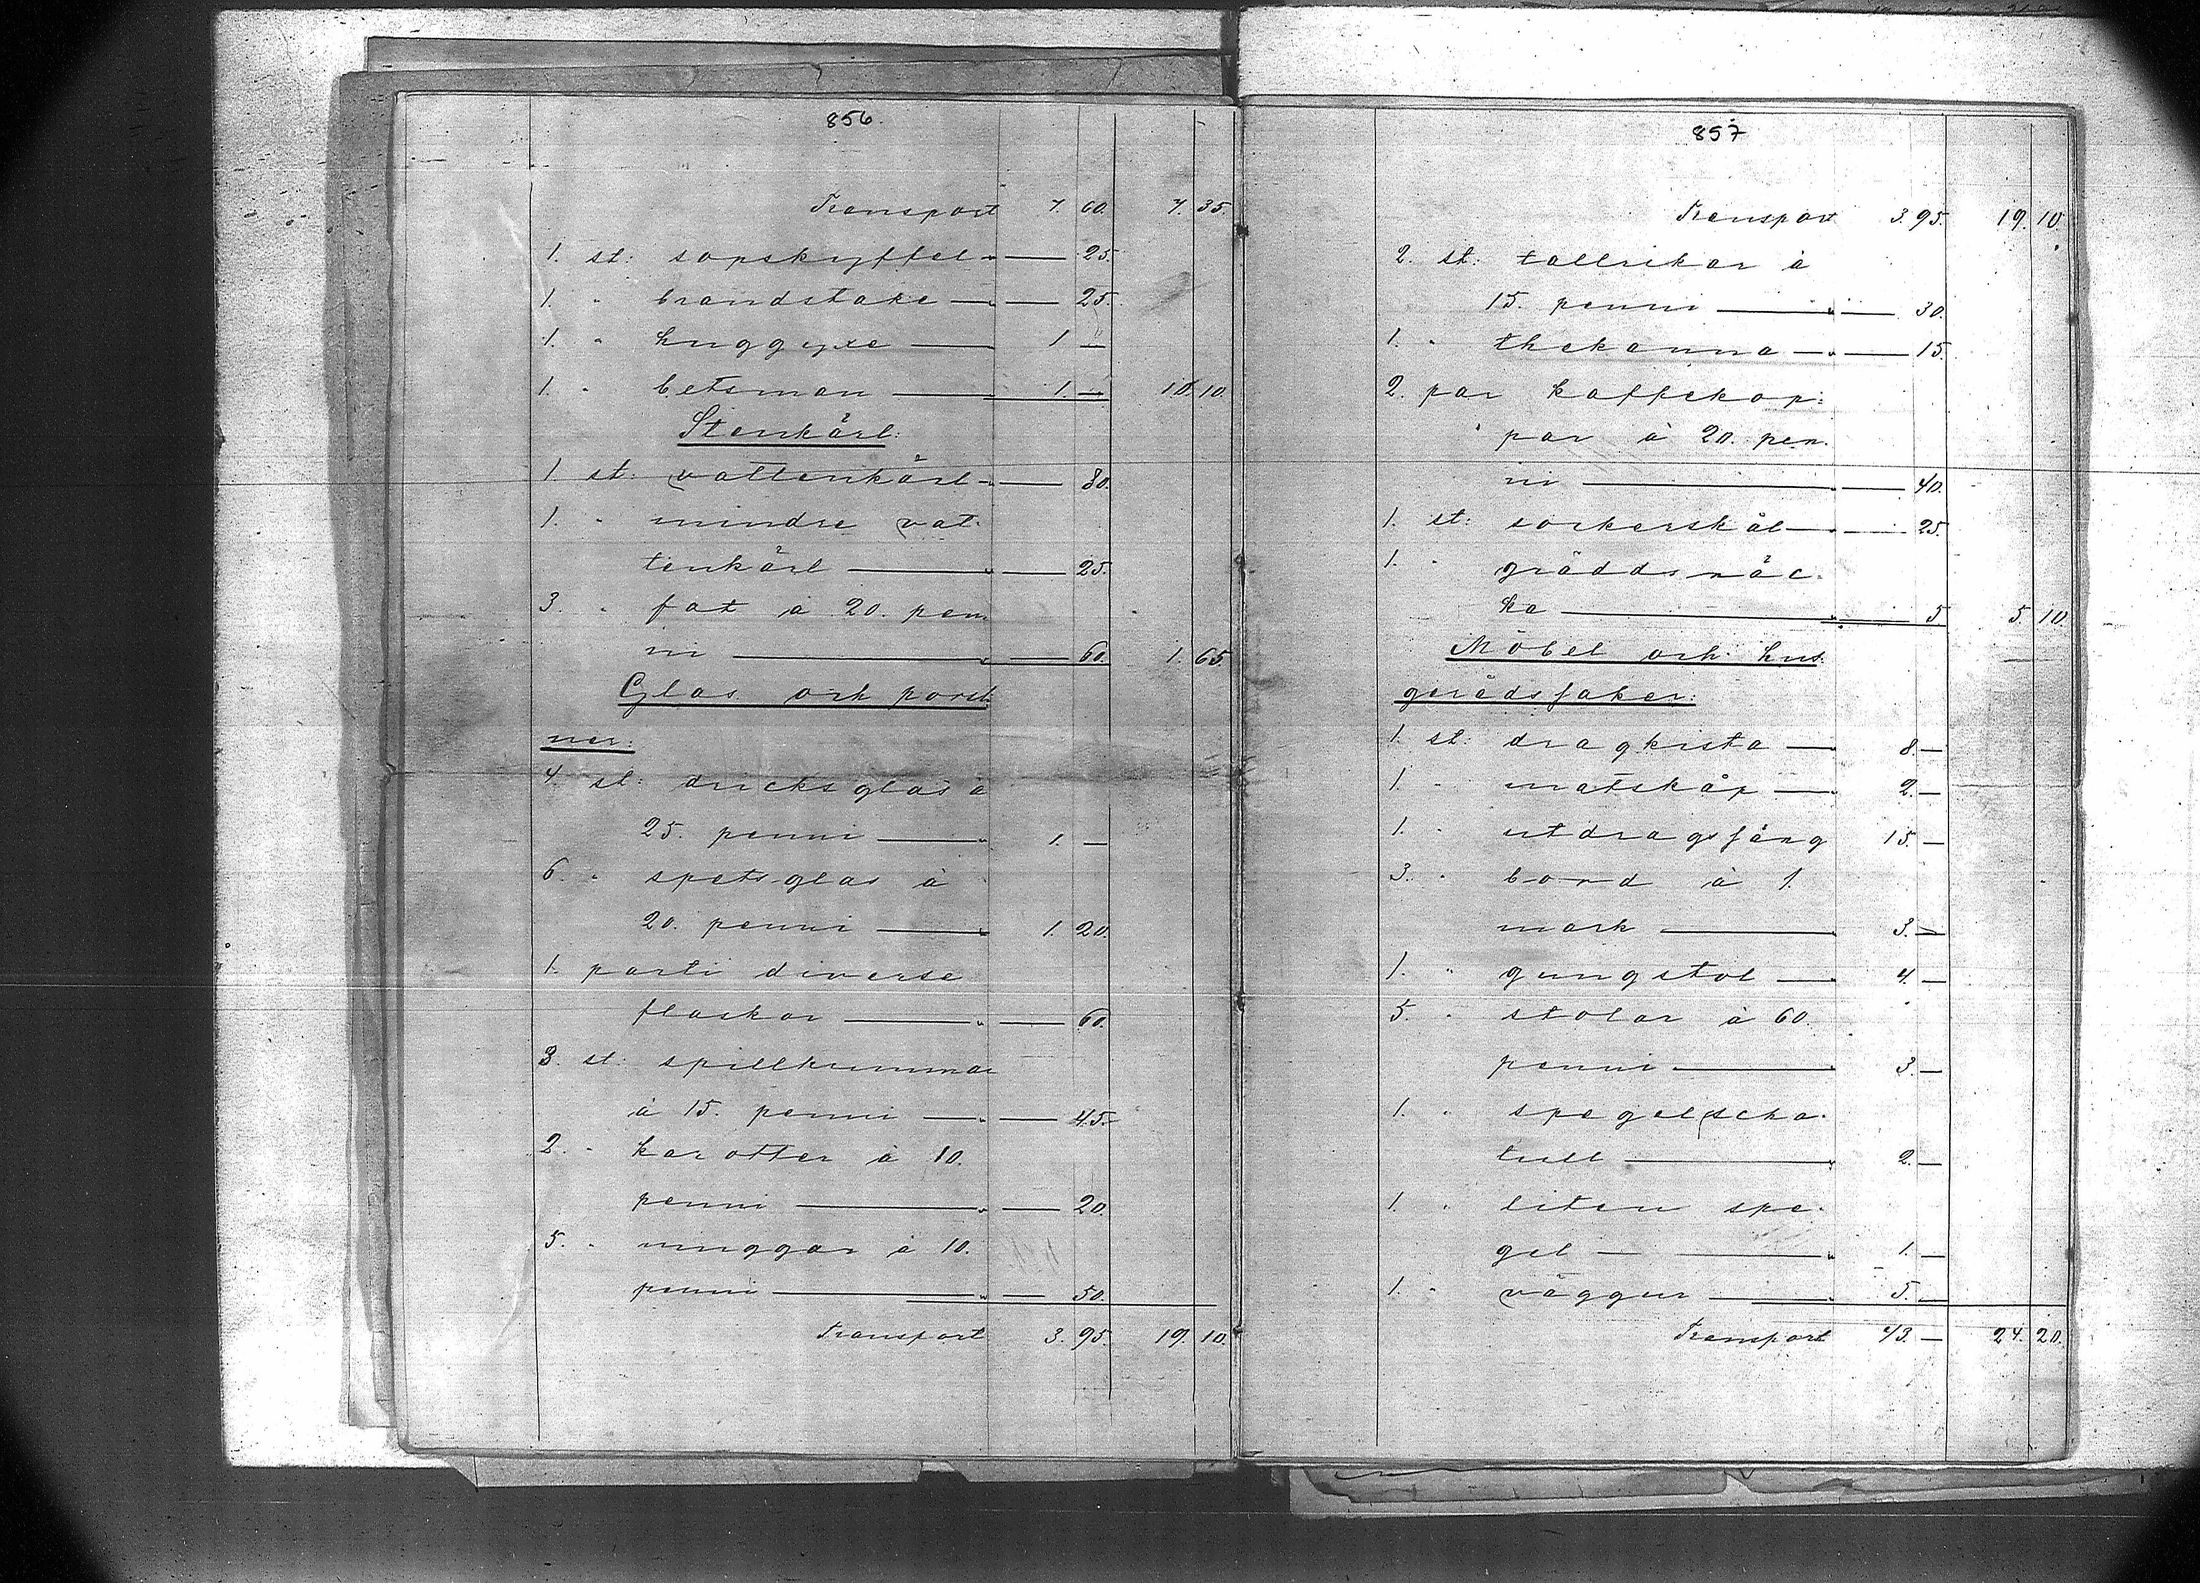 856.
Transport 7. 60. 7. 35.
1. st: sopskyffel — " — 25.
1. " brandstake — " — 25.
1. " huggyxe — 1 —
1. " betsman — 1. — 10. 10.
Stenkärl:
1 st: vattenkärl — " — 80.
1. " mindre vat-
tenkärl — " — 25.
3. " fat à 20. pen
ni — " — 60. 1. 65.
Glas och porsli
ner:
4. st: dricksglas à
25. penni — " 1. —
6. " spetsglas à
20. penni — " 1. 20.
1. parti diverse
flaskor — " — 60.
3. st: spillkummar
à 15. penni — " — 45.
2. " karotter à 10.
penni — " — 20.
5. " muggar à 10.
penni — " — 50.
Transport 3. 95. 19. 10.
857
Transport 3. 95. 19. 10.
2. st: tallrikar à
15. penni — " — 30.
1. " thekanna — " — 15.
2. par kaffekop-
par à 20. pen-
ni — " — 40.
1. st: sockerskål — " — 25.
1. " gräddsnäc-
ka — " — 5 5. 10.
Möbel och hus-
gerådssaker:
1. st: dragkista — 8. —
1. " matskåp — 2. —
1. " utdragssäng 15. —
3. " bord à 1.
mark — 3. —
1. " gungstol — 4. —
5. " stolar à 60.
penni — 3. —
1. " spegelscha-
trull — " 2. —
1. " liten spe-
gel — " 1. —
1. " väggur — " 5. —
Transport 43. — 24. 20.